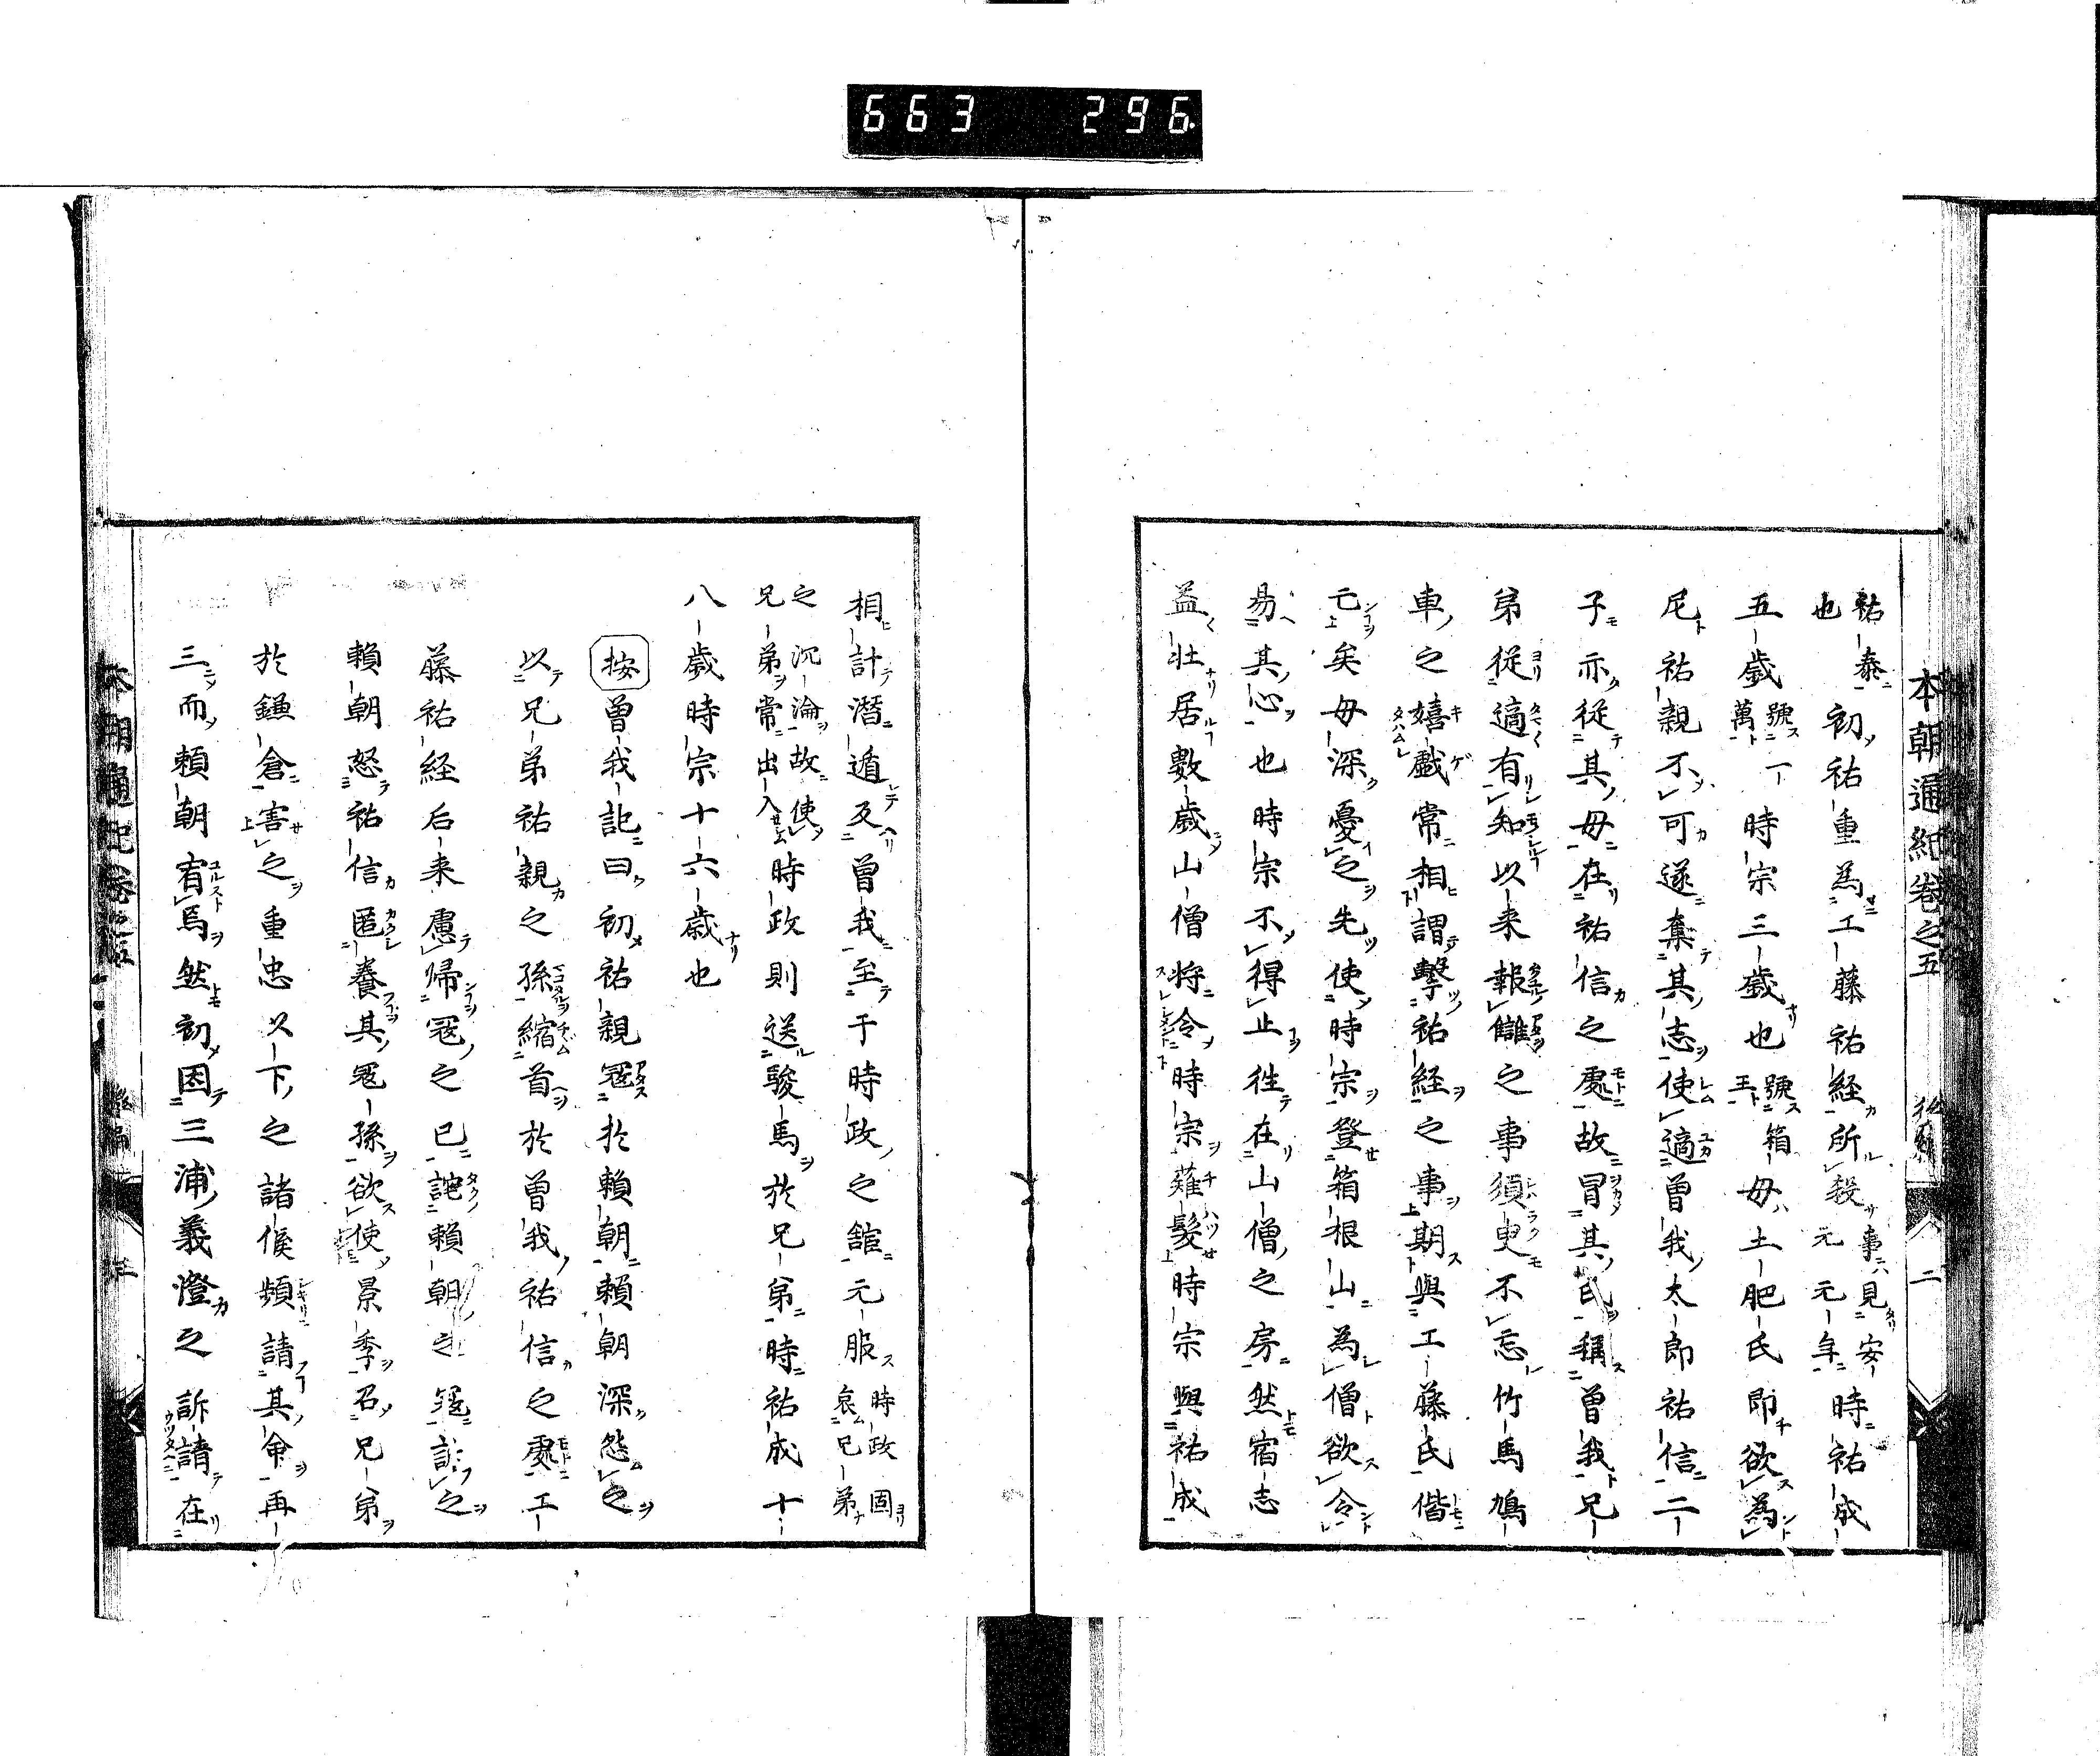 663 296
本朝通紀卷之五 後編 二
祐泰也初祐重為工藤祐経所殺事見安元元年時祐成
五歳號一萬時宗三歳也號箱王母土肥氏即欲為
尼祐親不可遂奪其志使適曾我太郎祐信二
子亦従其母在祐信之處故冒其氏稱曾我兄
弟従適有知以来報讎之事須臾不忘竹馬鳩
車之嬉戯常相謂撃祐経之事期與工藤氏偕
亡矣母深憂之先使時宗登箱根山為僧欲令
易其心也時宗不得止徃在山僧之房然宿志
益壮居數歳山僧将令時宗薙髪時宗與祐成
相計潜遁及曾我至于時政之舘元服時政固哀兄弟
之沉淪故使兄弟常出入時政則送駿馬於兄弟時祐成十
八歳時宗十六歳也
按曽我記曰初祐親冦於賴朝賴朝深怨之
以兄弟祐親之孫縮首於曽我祐信之處工
藤祐経后来慮帰冦之已詫賴朝之冦訴之
賴朝怒祐信匿養其冦孫欲使景季召兄弟
於鎌倉害之重忠以下之諸候頻請其命再
三而賴朝有焉然初因三浦義澄之訴請在
本朝通紀卷之五 後編 三